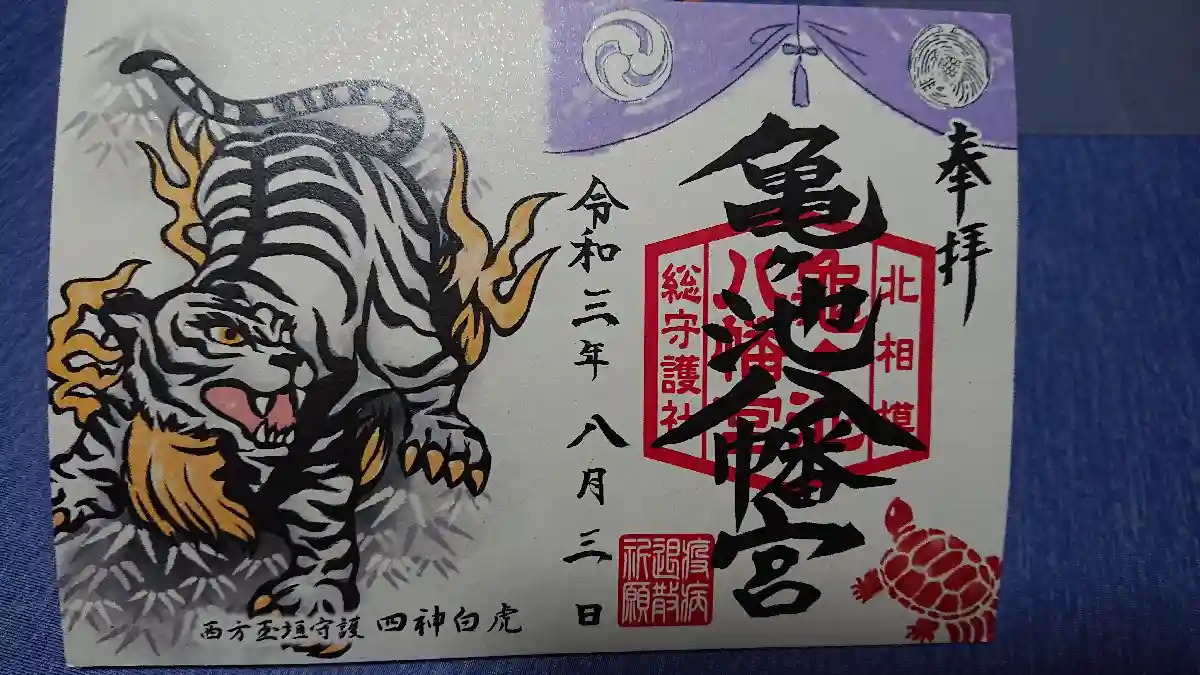 奉拝
亀ヶ池八幡宮
北相模
亀ヶ池
八幡宮
総守護社
疫病
退散
祈願
令和三年八月三日
四神白虎
西方玉垣守護